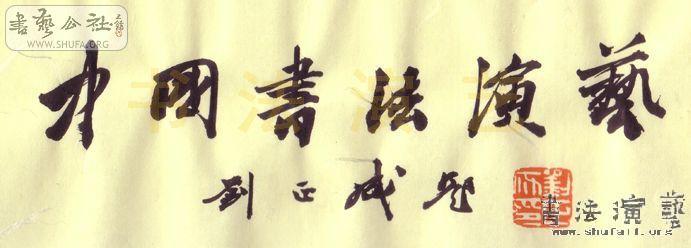 書藝公社
WWW.SHUFA.ORG
中國書法演藝
书法演艺
劉正成題
書法演藝
www.shufa11.org